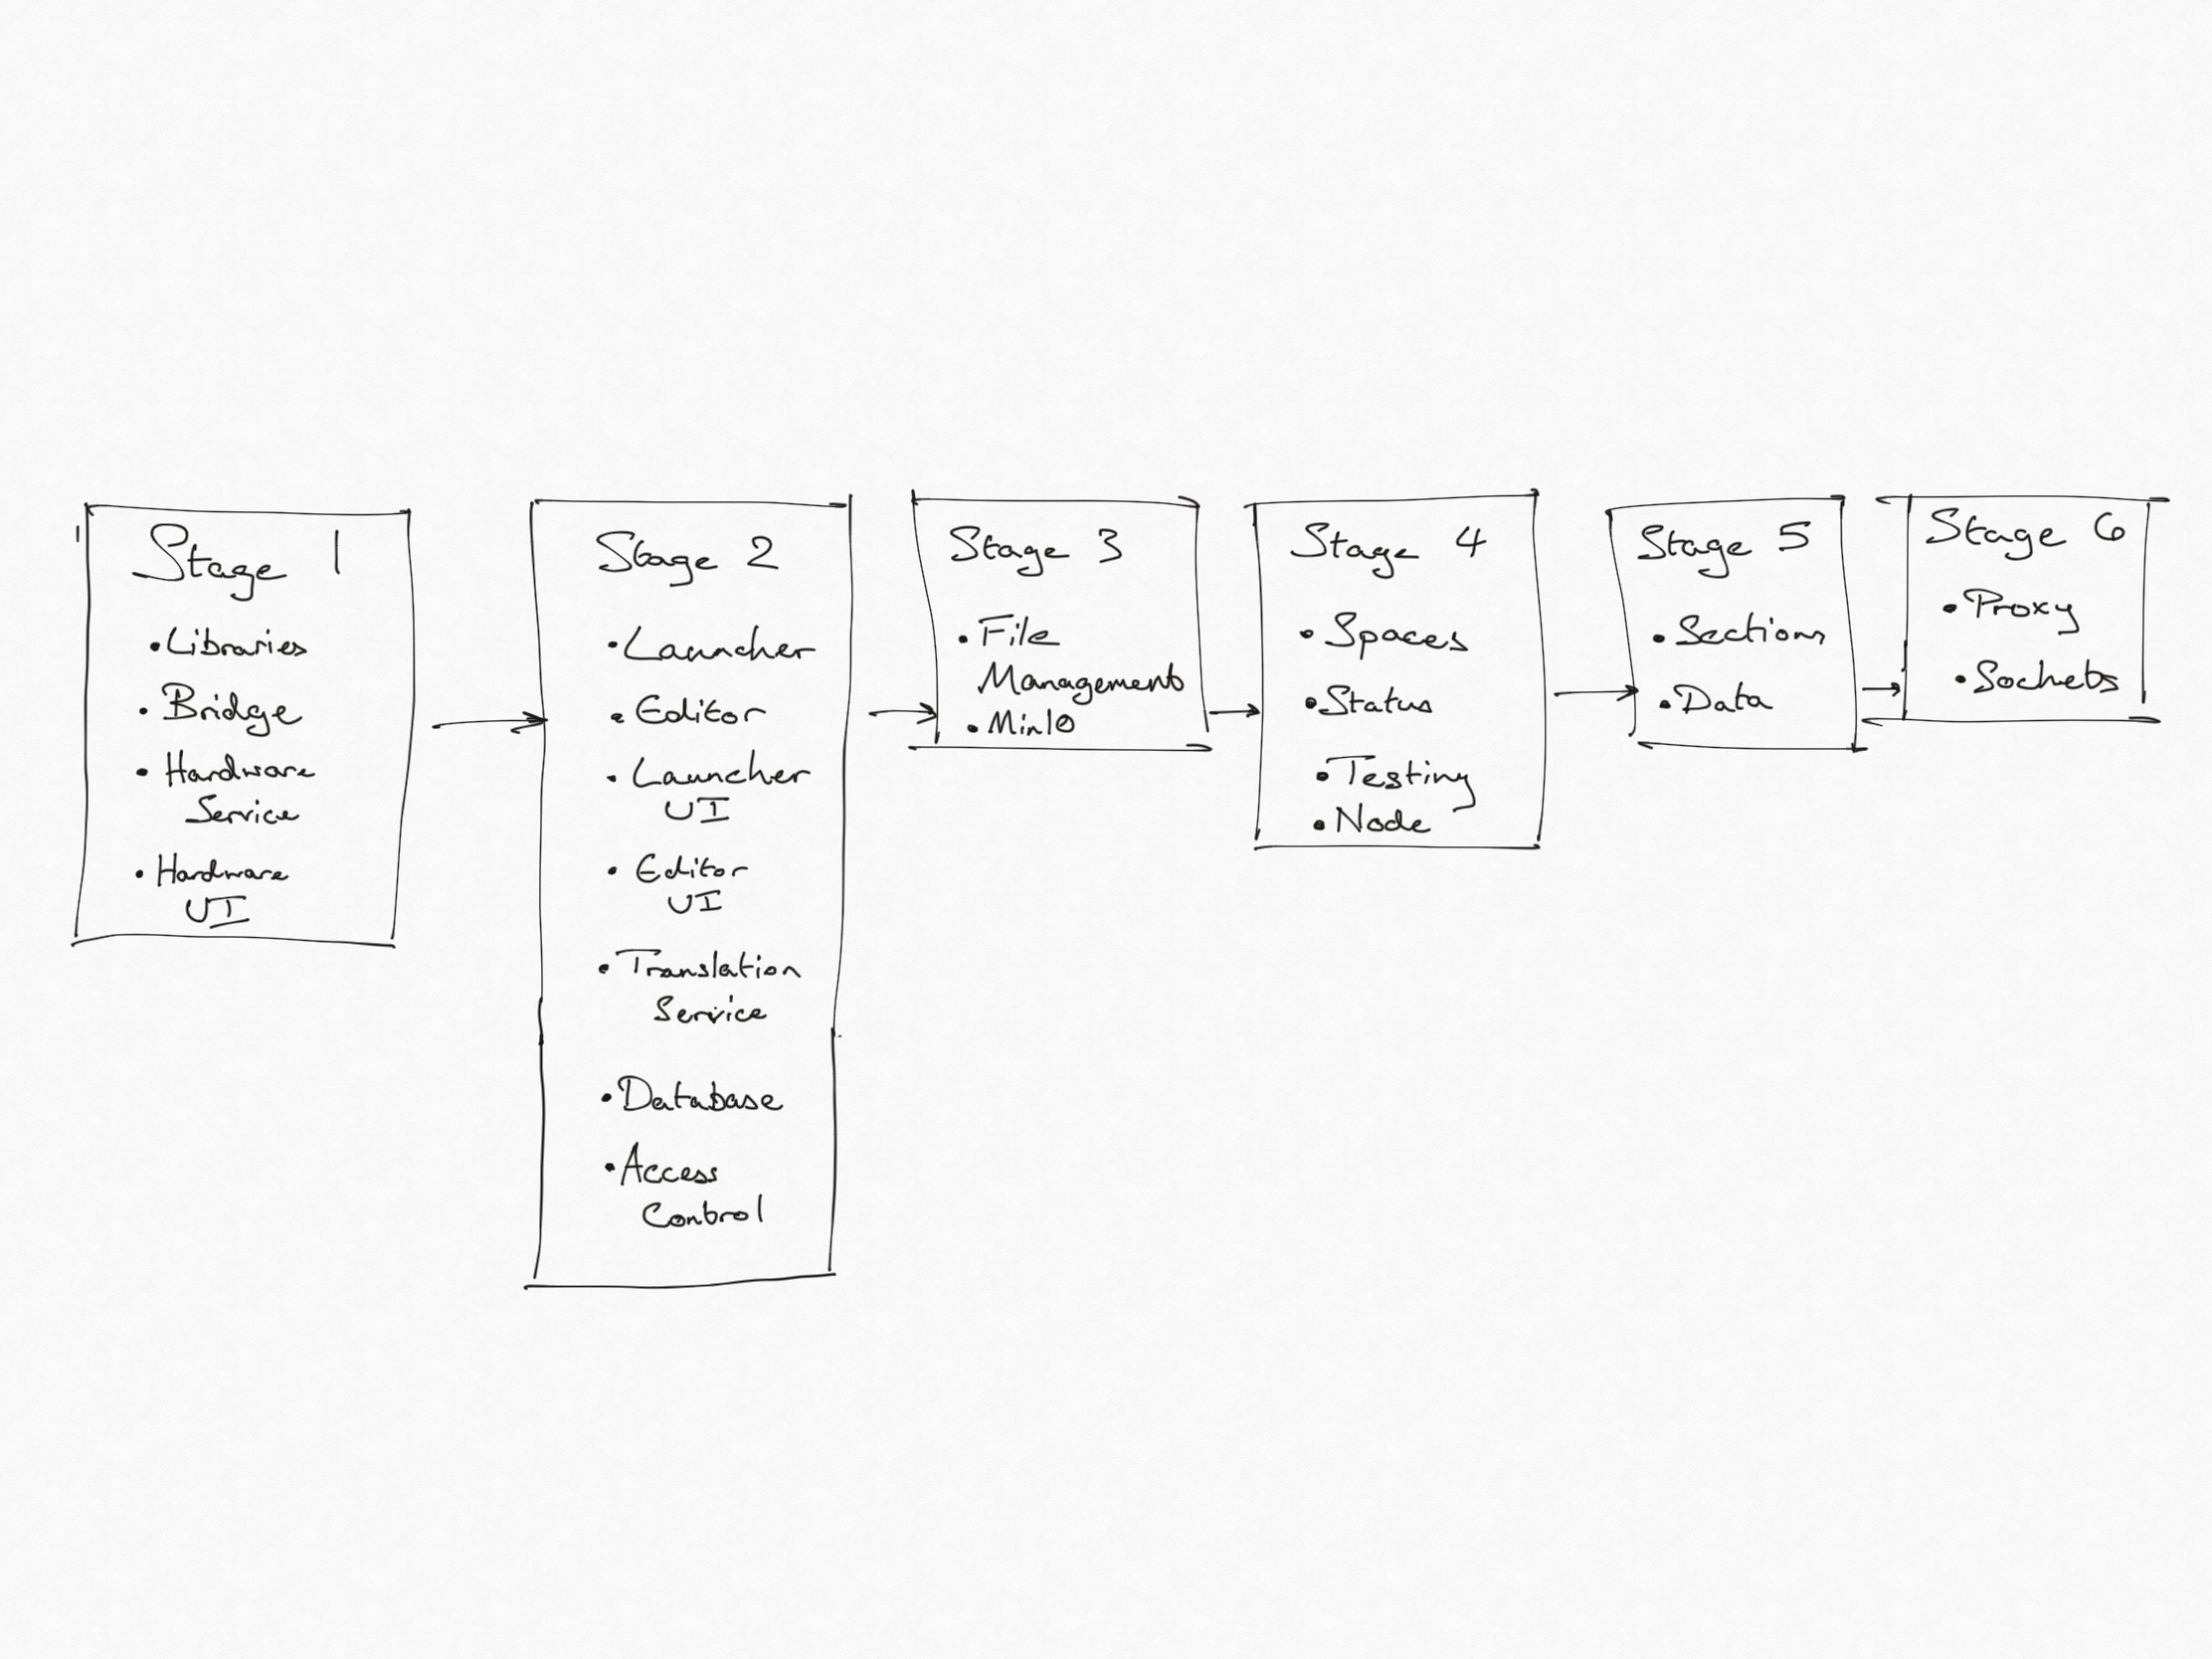 Stage 1
• Libraries
• Bridge
• Hardware
Service
• Hardware
UI
Stage 2
• Launcher
• Editor
• Launcher
UI
• Editor
UI
• Translation
Service
• Database
• Access
Control
Stage 3
• File
Management
• MinIO
Stage 4
• Spaces
• Status
• Testing
• Node
Stage 5
• Sections
• Data
Stage 6
• Proxy
• Sockets